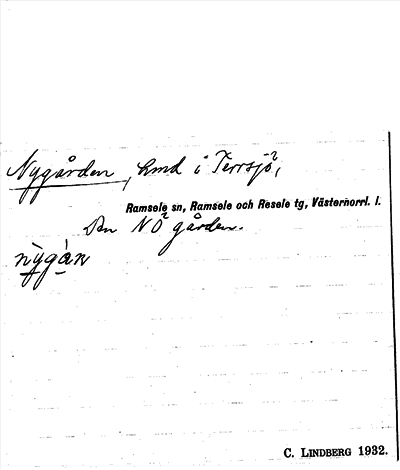 Nygården, hmd i Terrsjö,
Ramsele sn, Ramsele och Resele tg, Västernorrl. l.
Den NÖ gården.
nỳgàn
C. LINDBERG 1932.